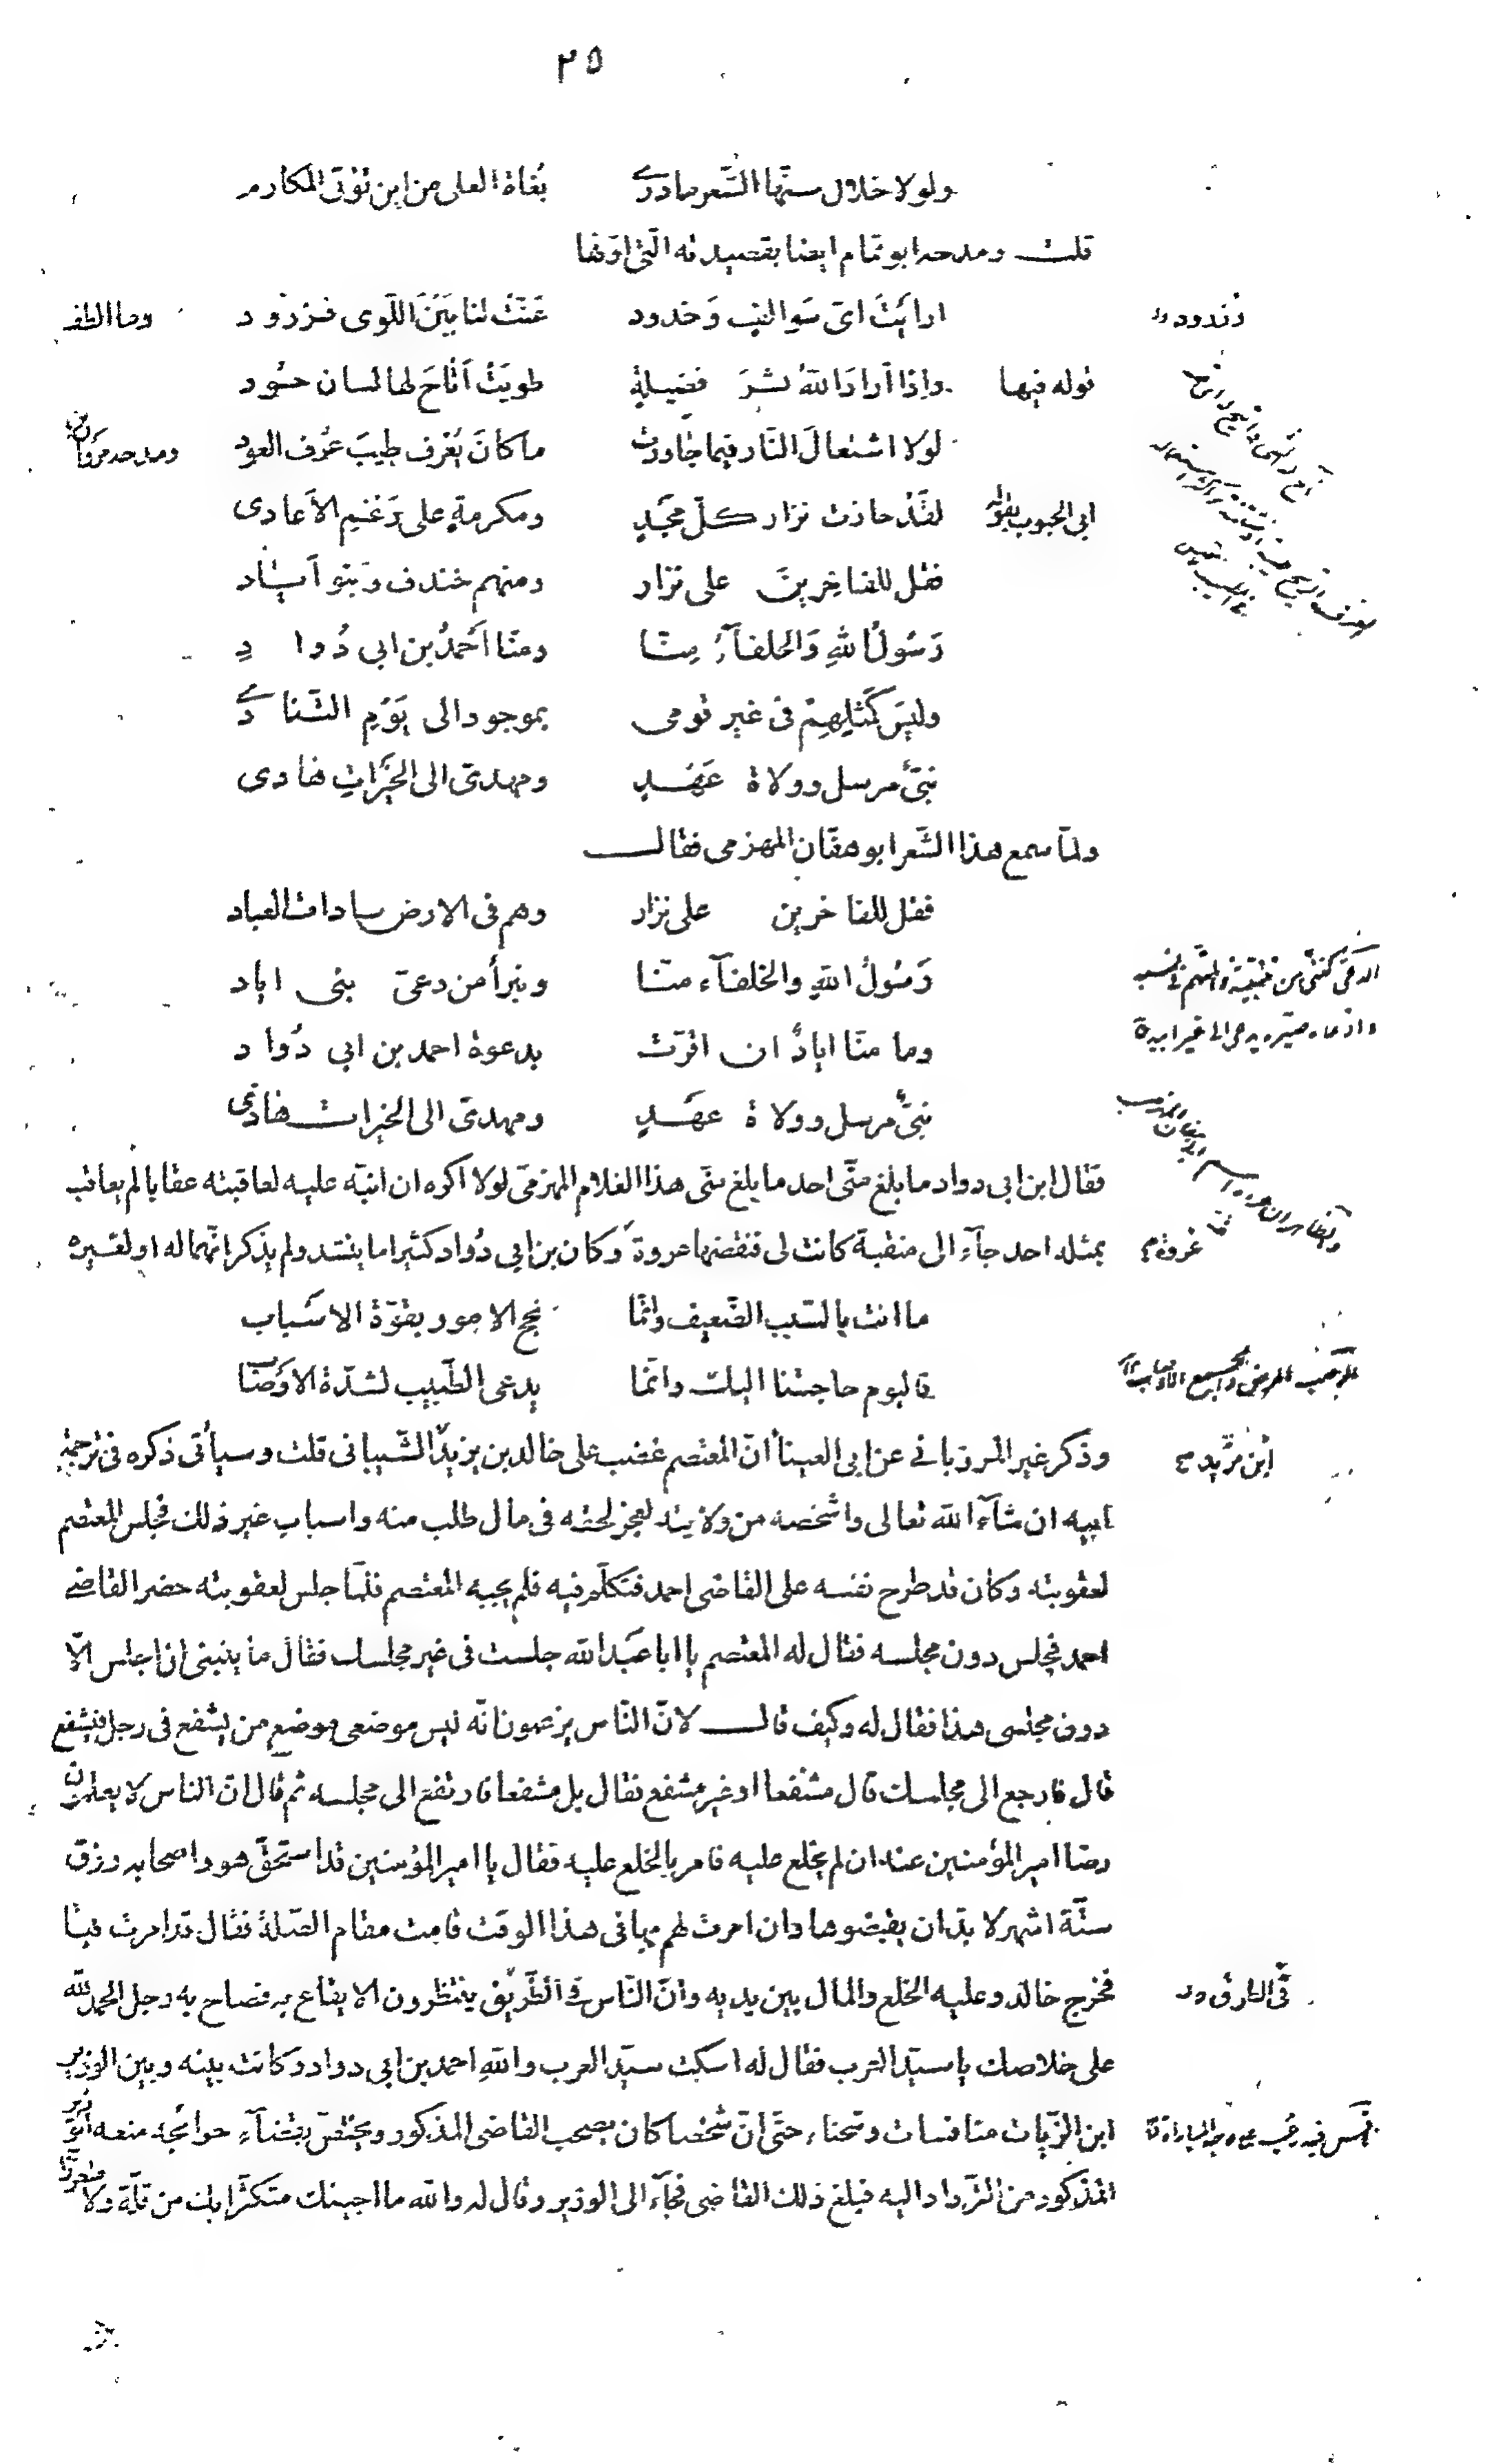 ٣٥
ولولا خلال سنّها الشّعر ما درى بُغاة العلى من اين تؤتى المكارم
قلت ومدحه ابو تمّام ايضا بقصيدته الّتى اوّلها
ارأيْتَ اىّ سَوالفٍ وَخدود عَنّتْ لنا بَيْنَ اللّوى فزرود وما الطف
قوله فيها واذا أرادَ اللّهُ نشرَ فضيلةٍ طويَتْ أتاحَ لها لسان حسُود
لولا اشتعالَ النّار فيما جٰاورت ما كانَ يُعْرف طيبَ عُرف العود ومدحه مروان بن
ابى الجنوب بقوله لقَدْ حازت نزار كلّ مجْدٍ ومكرمةٍ على رَغْمِ الأعادى
فقل للفاخِرينَ على نزار ومنهم خندف وبَنو أياد
رَسُولُ اللهِ وَالخلفآءُ مِنّا ومنّا أحْمدُ بن ابى دُوادِ
وليسَ كمَثلِهِمْ فى غير قومى بموجود الى يَوْمِ التّنادى
نبىٌّ مرسل وولاة عَهْدٍ ومهدىّ الى الخَيْراتِ هادى
ولمّا سمع هذا الشّعر ابو هفّان المهزمى فقال
فقل للفاخرين على نزار وهم فى الارض سادات العباد
رَسُولُ اللهِ والخلفآء منّا ونبرأ من دعىّ بنى اياد
وما منّا ايادٌ ان اقرّت بدعوة احمد بن ابى دُواد
نبىٌّ مرسل وولاة عهَدٍ ومهدىّ الى الخيرات هادى
فقال ابن ابى دواد ما بلغ منّى احد ما بلغ منّى هذا الغلام المهزمىّ لولا اكره ان انبّه عليه لعاقبته عقابا لم يعاقب
بمثله احد جآء الى منقبة كانت لى فنقضها عروة وكان بن ابى دُواد كثيرا ما ينشد ولم يذكر انّهما له او لغيره
عروة م
ما انت بالسّبب الضّعيف وانّما نجح الامور بقوّة الاسَباب
فاليوم حاجتنا اليك وانّما يدعى الطّبيب لشدّة الاوْصَاب
وذكر غير المرزبانى عن ابى العينأ أنّ المعتصم غضب على خالد بن يزيد الشّيبانى قلت وسيأتى ذكره فى ترجمة
ابن مَزْيد
ابيه ان شآء الله تعالى واشخصه من ولايته لعجز لحقه فى مال طلب منه واسباب غير ذلك فجلس المعتصم
لعقوبته وكان قد طرح نفسه على القاضى احمد فتكلّم فيه فلم يجبه المعتصم فلمّا جلس لعقوبته حضر القاضى
احمد فجلس دون مجلسه فقال له المعتصم يا ابا عَبْد الله جلست فى غير مجلسك فقال ما ينبغى ان اجلس الّا
دون مجلسى هذا فقال له وكيف قال لانّ النّاس يزعمون انّه ليس موضعى موضع من يشفع فى رجل فيشفع
قال فارجع الى مجلسك قال مشفّعا او غير مشفع فقال بل مشفعا فارتفع الى مجلسه ثم قال انّ الناس لا يعلمون
رضا امير المؤمنين عنه ان لم يخلع عليه فامر بالخلع عليه فقال يا امير المؤمنين قد استحقّ هو واصحابه رزق
ستّة اشهر لا بدّ ان يقبضوها وان امرت لهم بها فى هذا الوقت قامت مقام الصّلة فقال قد امرت فيها
فخرج خالد وعليه الخلع والمال بين يديه وانّ النّاس فى الطّريق ينتظرون الايقاع به فصاح به رجل الحمد لله
فى الطرق
على خلاصك يا سيّد العرب فقال له اسكت سيّد العرب والله احمد بن ابى دواد وكانت بينه وبين الوزير
ابن الزّيات منافسات وشحناء حتّى انّ شخصا كان يصحب القاضى المذكور ويختصّ بقضآء حوائجه منعه الوزير
المذكور من التّرداد اليه فبلغ ذلك القاضى فجآء الى الوزير وقال له والله ما اجيئك متكثّرا بك من قلّة ولا متعزّزا